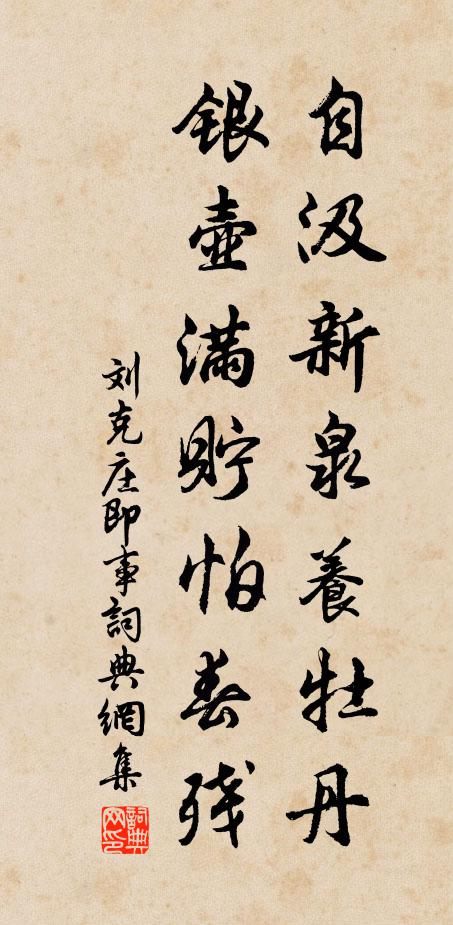 自汲新泉養牡丹
銀壺滿貯怕春殘
刘克庄即事詞典網集
詞典网印